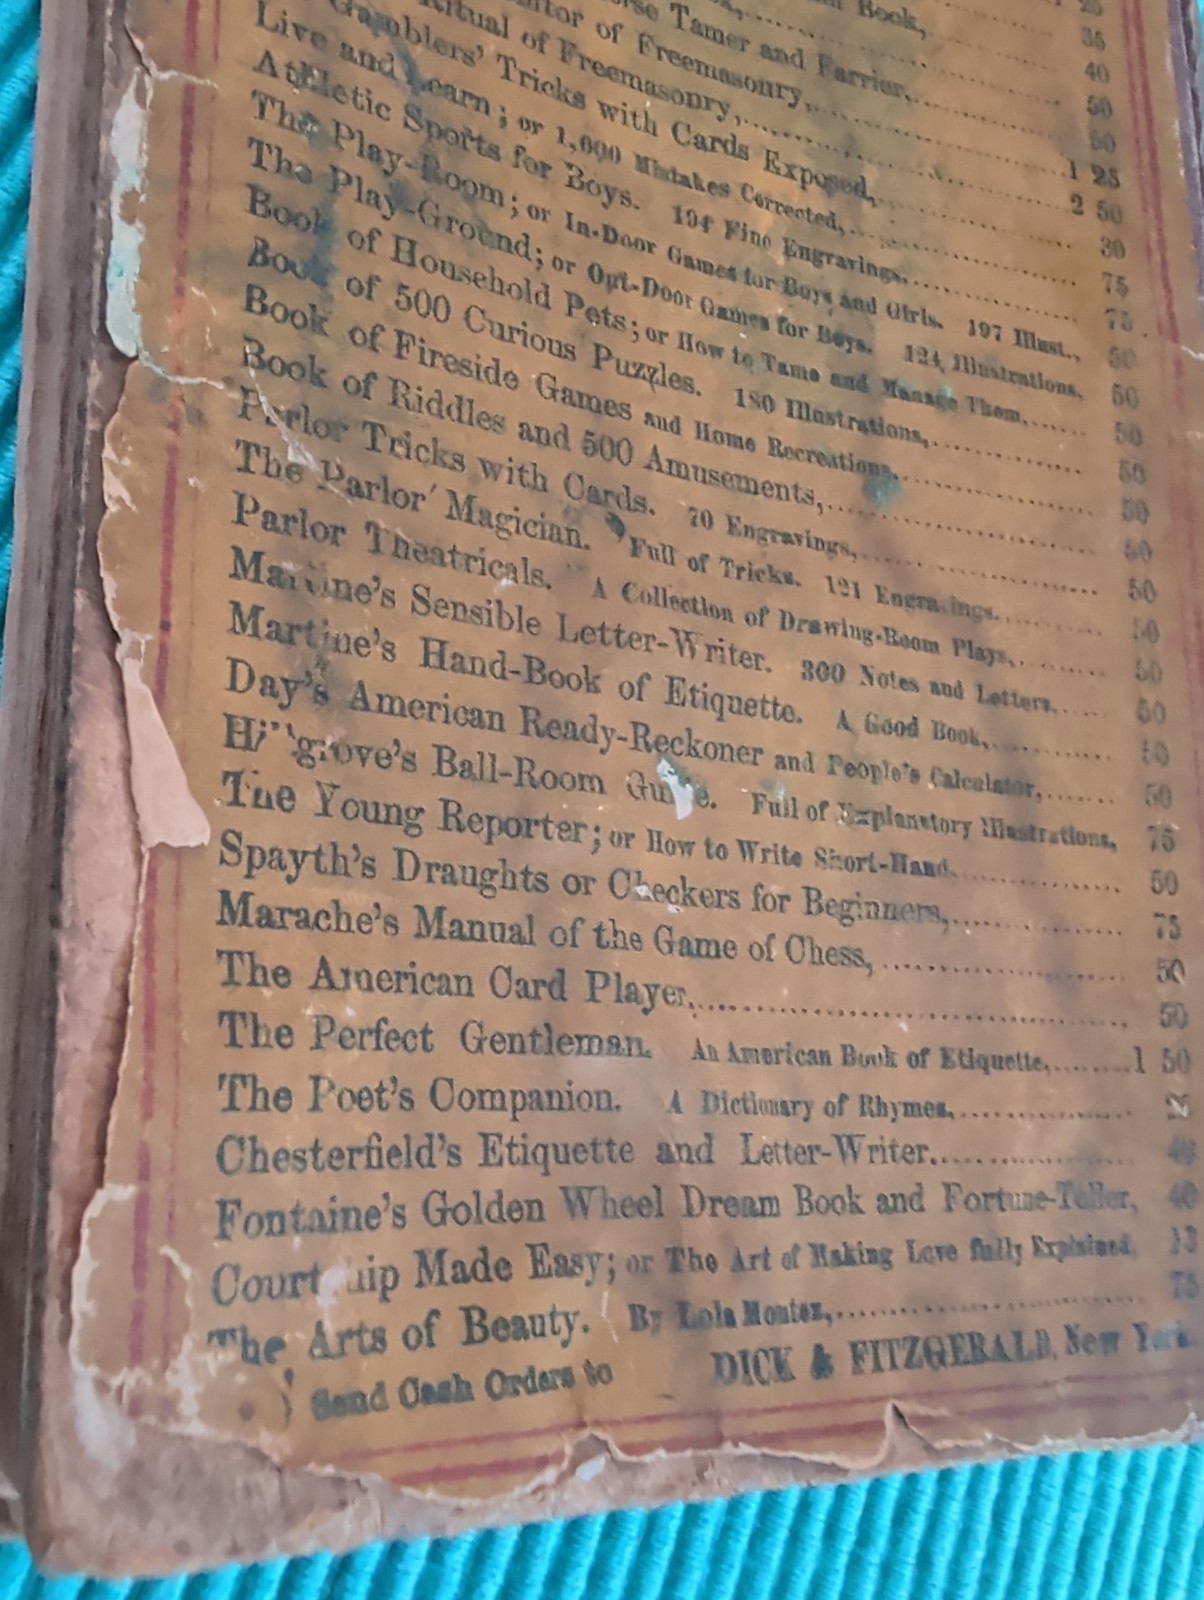 Book,
Tamer and Farrier, 50
of Freemasonry,
Ritual of Freemasonry,
Gamblers' Tricks with Cards Exposed, 30
Live and Learn; or 1,000 Mistakes Corrected, 75
Athletic Sports for Boys. 194 Fine Engravings, 75
The Play-Room; or In-Door Games for Boys and Girls. 197 Illust., 50
The Play-Ground; or Out-Door Games for Boys. 124 Illustrations, 50
Book of Household Pets; or How to Tame and Manage Them, 50
Book of 500 Curious Puzzles. 180 Illustrations, 50
Book of Fireside Games and Home Recreations, 50
Book of Riddles and 500 Amusements, 50
Parlor Tricks with Cards. 70 Engravings, 50
The Parlor Magician. Full of Tricks. 121 Engravings, 50
Parlor Theatricals. A Collection of Drawing-Room Plays, 50
Martine's Sensible Letter-Writer. 300 Notes and Letters, 50
Martine's Hand-Book of Etiquette. A Good Book, 50
Day's American Ready-Reckoner and People's Calculator, 50
Hillgrove's Ball-Room Guide. Full of Explanatory Illustrations, 75
The Young Reporter; or How to Write Short-Hand, 50
Spayth's Draughts or Checkers for Beginners, 75
Marache's Manual of the Game of Chess, 50
The American Card Player, 50
The Perfect Gentleman. An American Book of Etiquette, 1 50
The Poet's Companion. A Dictionary of Rhymes,
Chesterfield's Etiquette and Letter-Writer. 40
Fontaine's Golden Wheel Dream Book and Fortune-Teller, 40
Courtship Made Easy; or The Art of Making Love fully Explained, 13
The Arts of Beauty. By Lola Montez, 75
Send Cash Orders to DICK & FITZGERALD, New York